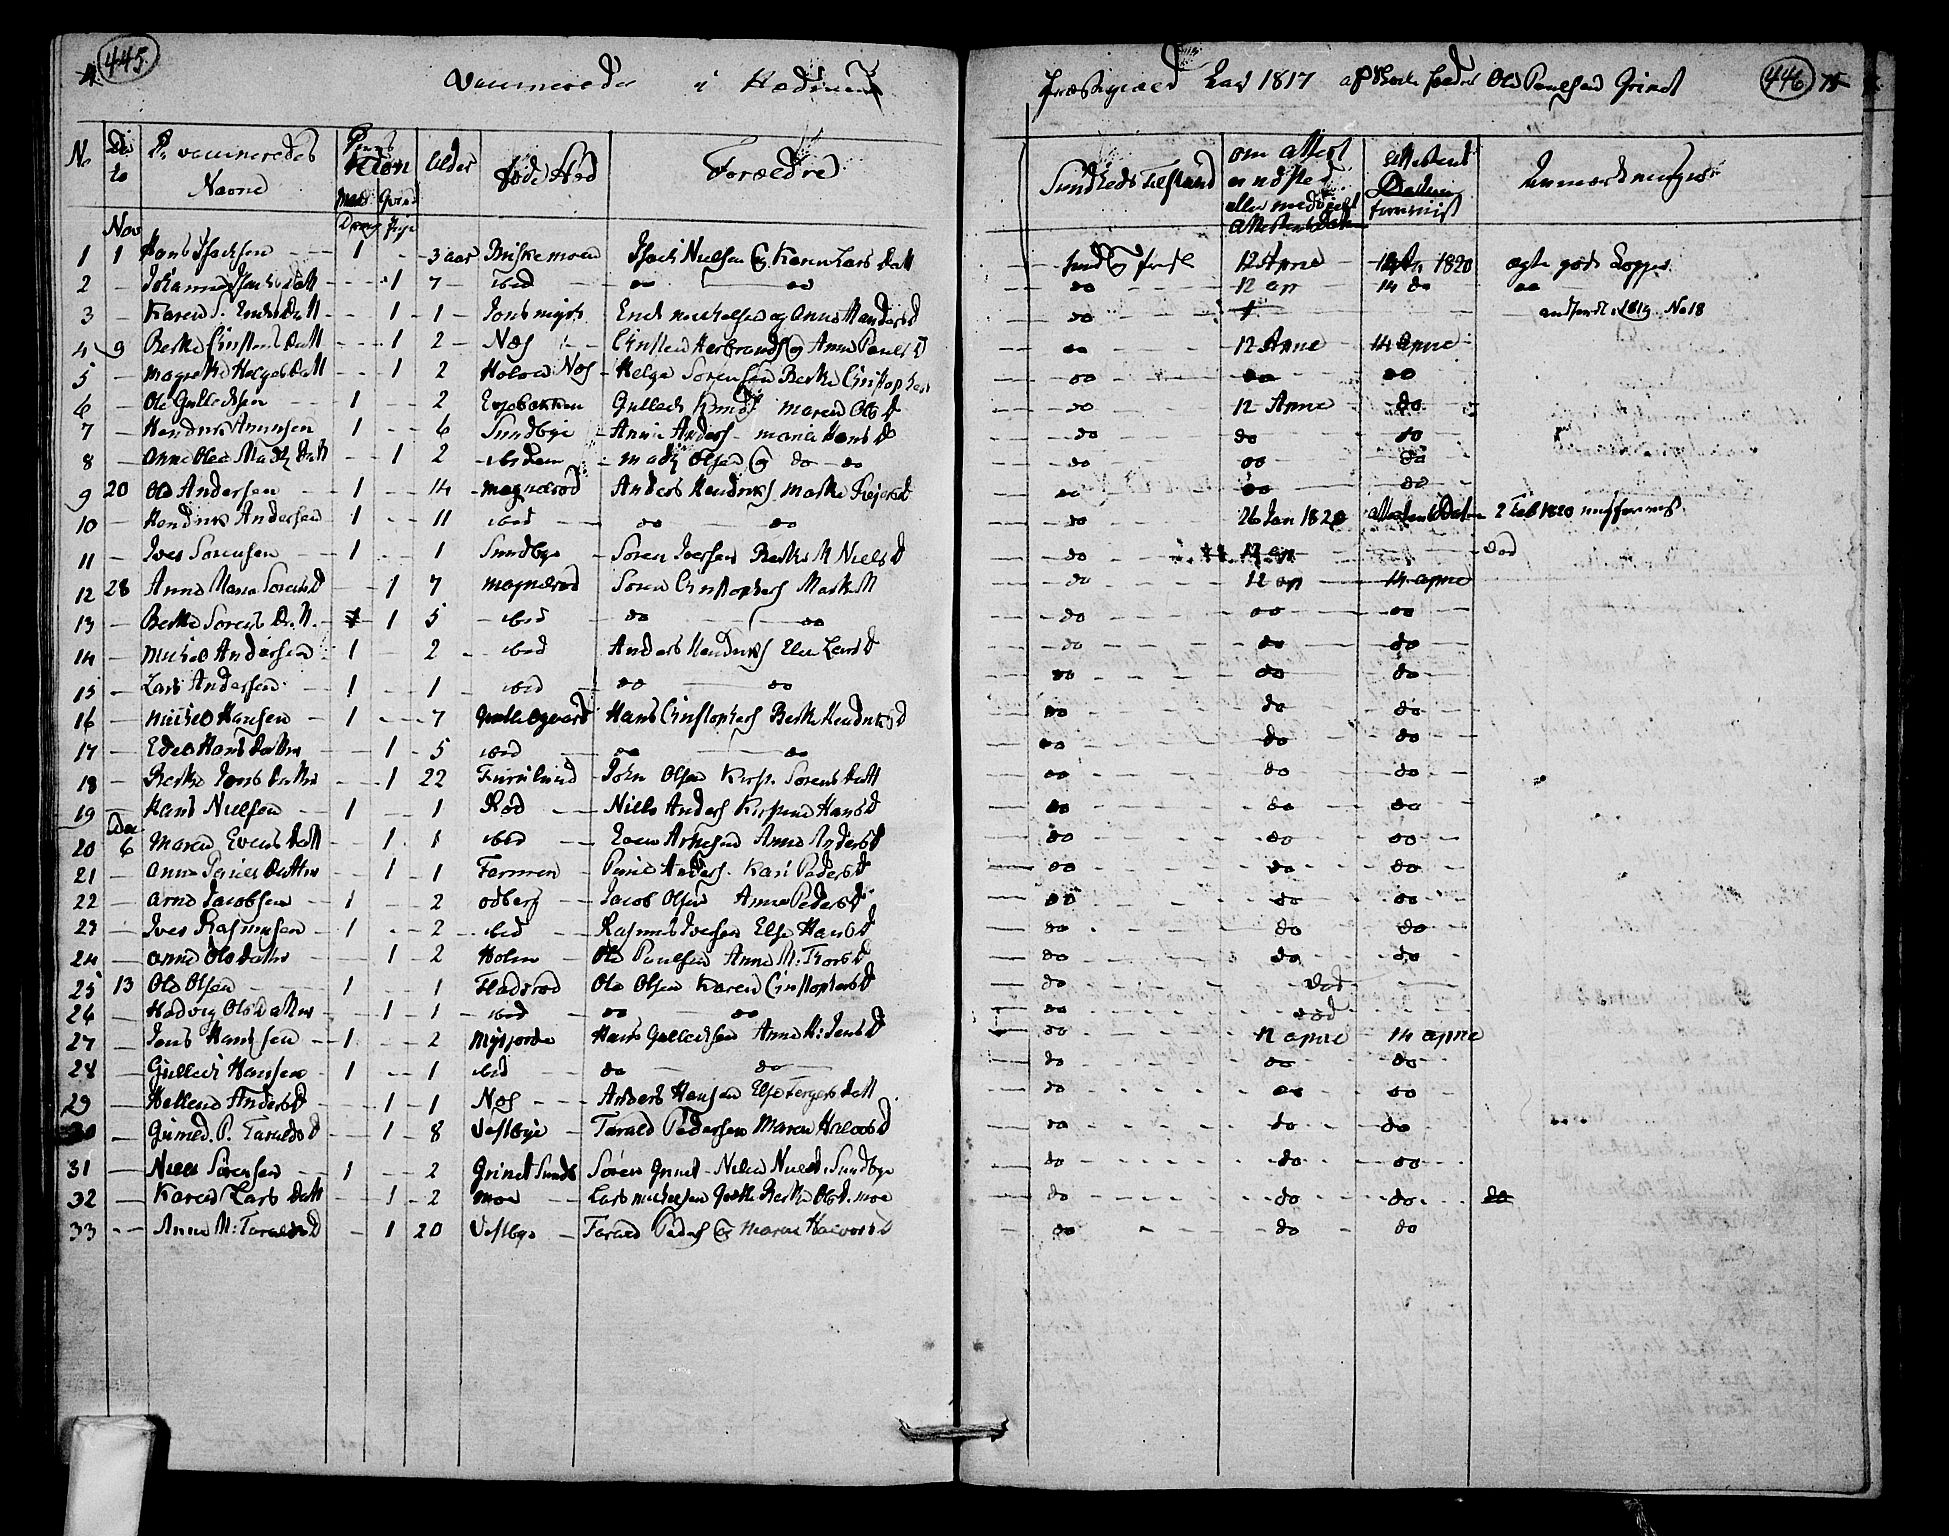 445.
Vaccinerede i Hedrum
No Dato De vaccineredes Navne Alder føde Stæd Forældre
Nov
1 1 Hans Isachsen 1 3 aar Briskemoen Isach Nielsen og Karen Lars Datt
2 Johanne Isachs Datt 1 7 ibid do do
3 Karen S. Erichs Datt 1 1
4 9 Berthe Christens Datt 1 2 Næs Christen Herbrands og Anne Pauls D
5 Magrethe Helges Datt 1 2 Næs Helge Sørensen Berthe Christophers
6 Ole Gullichsen 1 2 Gullich Knuds Maren Ols D
7 Hendrik Amunsen 1 6 Sundbye Anders Maria Hans D
8 Anne Olea Madz Datt 1 2 ibidem Madz Olsen og do do
9 20 Ole Andersen 1 14 Magnerød Anders Hendriks Marthe
10 Hendrik Andersen 1 11 ibid do do
11 Iver Sørensen 1 1 Sundbye Søren Iversen Berthe M Niels D
12 28 Anne Maria Sørens D 1 7 Magnerød Søren Christophers Marthe M
13 Berthe Sørens D. M. 1 5 ibid do do
14 Michel Andersen 1 2 ibid Anders Hendriks Elie Lars D
15 Lars Andersen 1 1 ibid do do
16 Michel Hansen 1 7 Hans Christophers Berthe Hendriks D
17 Edel Hans Datter 1 5 ibid do do
18 Berthe Jons Datter 1 22 John Olsen Kirst. Sørens Datt
19 Hans Nielsen 1 1 Rød Niels Anders Kirstine Hans D
Dec
20 6 Maren Evens Datt 1 1 ibid Even Arnesen Anne Anders D
21 Anne Datter 1 1 Farmen Anders. Kari Peders D
22 Arne Jacobsen 1 2 Odberg Jacob Olsen Anne Peders D
23 Iver Rasmusen 1 2 ibid Rasmus Iversen Else Hans D
24 Anne Ols Datter 1 2 Holm Ole Paulsen Anne M. Thors D
25 13 Ole Olsen 1 1 Fladsrød Ole Olsen Karen Christophers D
26 Hedvig Ols Datter 1 1 ibid do do
27 Jens Hansen 1 2 Hans Gullichsen Anne H: Jens D
28 Gullich Hansen 1 1 ibid do do
29 Hellene Anders D 1 1 Næs Anders Hansen Else Torgers Datt
30 Gunild. P. Taralds D 1 8 Vestbye Tarald Pedersen Maren Halvors D
31 Niels Sørensen 1 2 Grinet Sundb Søren Grinet Niels D. Sundbye
32 Karen Lars Datt 1 2 Moe Lars Michelsen Berthe Ols D. Moe
33 Anne M: Taralds D 1 20 Vestbye Tarald Peders og Maren Halvors D
446.
Præstegield Aar 1817 af Ole Paulsen Grinet
Sundheds Tilstand om Attest er udsted eller meddeelt Attestens Datum Anmærkninger
sund og frisk 12 April 1820 ægte gode Kopper
do 12 ap 14 do do
do 1819 No 18
do 12 April 14 April
do do do
do 12 April do
do do do
do do do
do do do
do 26 Jan 1820 2 Feb 1820
do 12 ap død
do 12 ap 14 april
do do do
do do do
do do do
do do do
do do do
do do do
do do do
do do do
do do do
do do do
do do do
do do do
do død
do død
do 12 april 14 april
do do do
do do do
do do do
do do do
do do do do
do do do